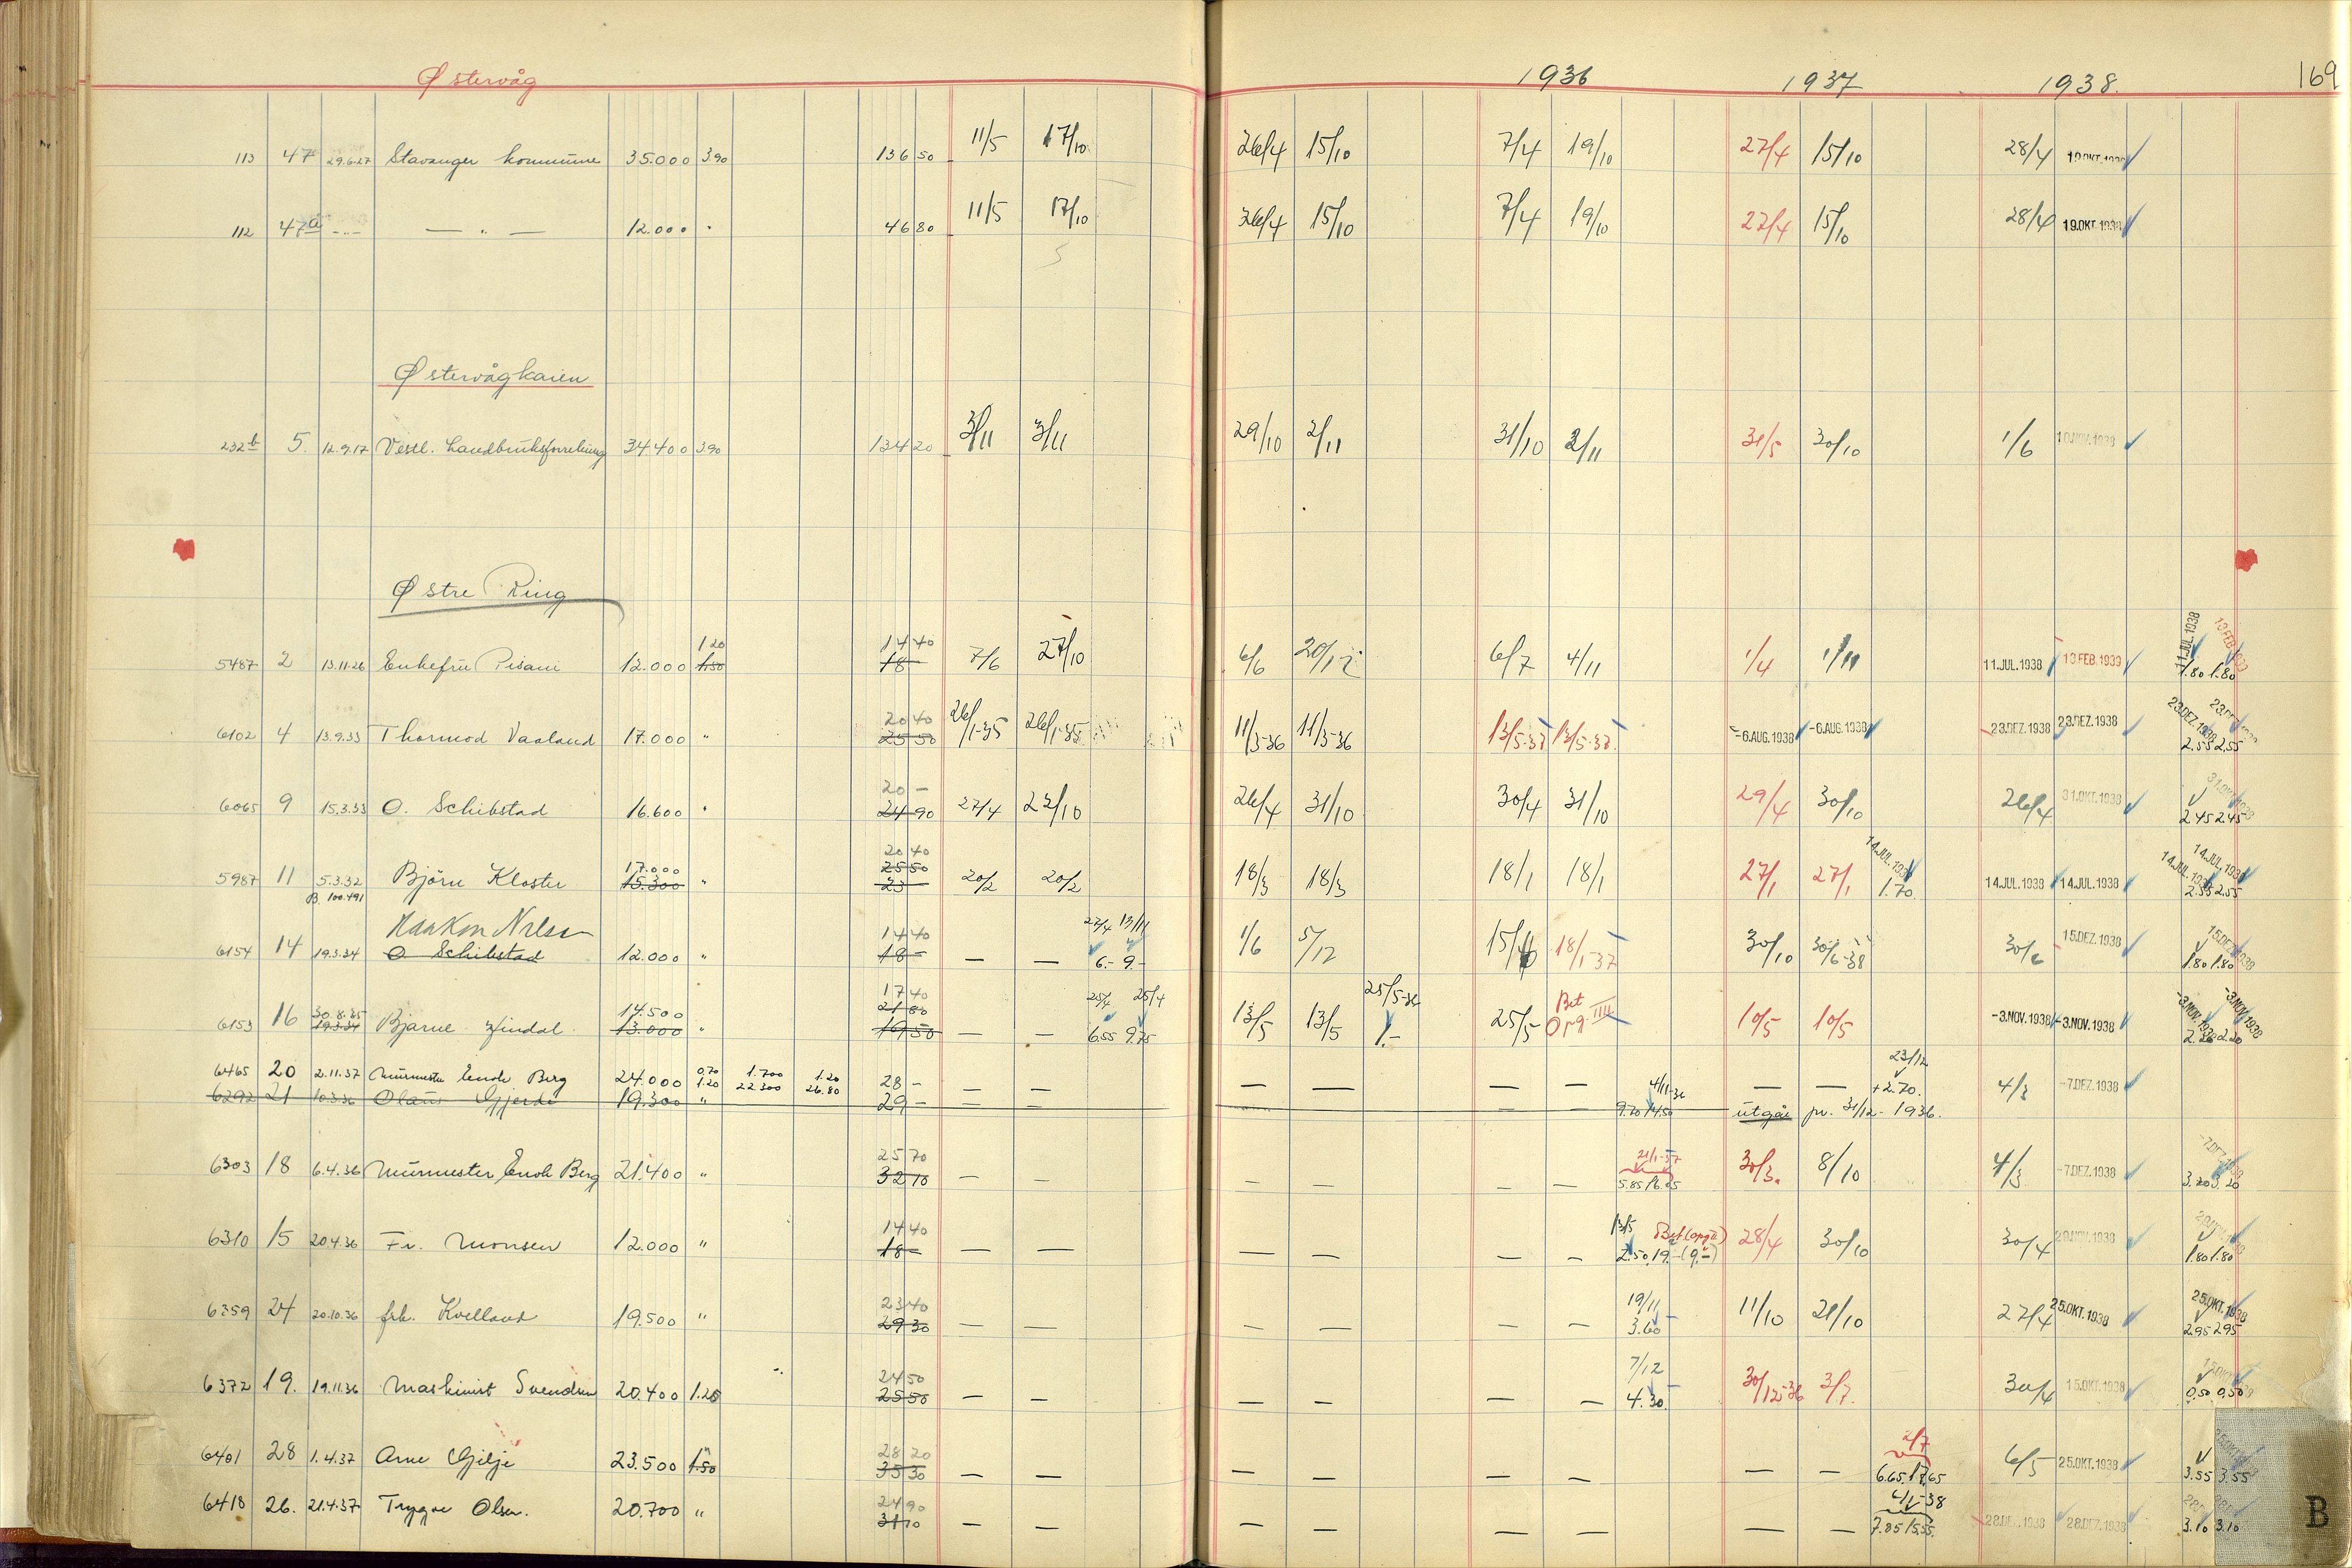 Østervåg 1936 1937 1938. 169
113 47 29.6.27 Stavanger kommune 35.000 3.90 136 50 11/5 17/10 26/4 15/10 7/4 19/10 27/4 15/10 28/4
112 47a — " — 12.000 " 46 80 11/5 17/10 26/4 15/10 7/4 19/10 27/4 15/10 28/4 19.OKT.1938
Østervågkaien
232b 5. 12.9.17 Vestl. Landbruksforretning 34.400 3.90 134 20 3/11 3/11 29/10 2/11 31/10 2/11 31/5 30/10 1/6 10.NOV.1938
Østre Ring
1.20 14 40
5487 2 13.11.26 Enkefru Pisani 12.000 1.50 18 – 7/6 27/10 6/6 20/12 6/7 4/11 1/4 1/11 11.JUL.1938 13 FEB.1939 11.JUL.1938 1.80 1.80
20 40
6102 4 13.9.33 Thormod Vaaland 17.000 " 25 50 26/1-35 26/1-35 11/3-36 11/3-36 13/5-38 13/5-38 -6.AUG.1938 -6.AUG.1938 23.DEZ.1938 23.DEZ.1938 23.DEZ.1938 2.55 2.55
20 –
6065 9 15.3.33 O. Schibstad 16.600 " 24 90 27/4 22/10 26/4 31/10 30/4 31/10 29/4 30/10 26/4 31.OKT.1938 31.OKT.1938 2.45 2.45
20 40
17.000 25 50 14.JUL.1938 14.JUL.1938 14.JUL.1938
5987 11 5.3.32 Björn Kloster 15.300 " 23 – 20/2 20/2 18/3 18/3 18/1 18/1 27/1 27/1 1.70 14.JUL.1938 14.JUL.1938 2.55 2.55
B. 100.491
Haakon Nilsen 14 40 27/4 13/11
6154 14 19.3.34 O Schibstad 12.000 " 18 – — — 6.– 9.– 1/6 5/12 15/10 18/1-37 30/10 30/6-38 30/6 15.DEZ.1938 15.DEZ.1938 1.80 1.80
30.8.35 14.500 17 40 21 80 25/4 25/4 25/5-36 Bet
6153 16 19.3.34 Bjarne Lindal 13.000 " 19 50 — — 6.55 9.75 13/5 13/5 1.– 25/5 Org. IIII 10/5 10/5 -3.NOV.1938 -3.NOV.1938 -3.NOV.1938 -3.NOV.1938 2.20 2.20
0.70 1.700 1.20 23/12
6465 20 2.11.37 Murmester Enok Berg 24.000 1.20 22.300 26.80 28 – — — — — — — 4/11-36 — — +2.70. 4/3 -7.DEZ.1938
6292 21 10.3.36 Olaus Gjerde 19.300 " 29 – — — — — 9.70 14.50 utgår pr. 31/12 - 1936.
25 70 21/1-37 -7.DEZ.1938
6303 18 6.4.36 Murmester Enok Berg 21.400 " 32 10 — — — — — — 5.85 16.05 30/3. 8/10 4/3 -7.DEZ.1938 3.20 3.20
14 40 13/5 Bet (org II)
6310 15 20.4.36 Fr. Monsen 12.000 " 18 – — — — — — — 2.50 19.– (9.–) 28/4 30/10 30/4 29.NOV.1938 1.80 1.80
23 40 19/11 25.OKT.1938
6359 24 20.10.36 frk. Kvelland 19.500 " 29 30 — — — — — — 3.60 11/10 21/10 27/4 25.OKT.1938 2.95 2.95
24 50 7/12
6372 19. 19.11.36 Maskinist Svendsen 20.400 1.20 25 50 — — — — — — 4.30 30/12-36 3/7. 30/4 15.OKT.1938 0.50 0.50
28 20 2/7
6401 28 1.4.37 Arne Gilje 23.500 1.50 35 30 — — — — — — — — 6.65 17.65 6/5 25.OKT.1938 3.55 3.55
24 90 4/1-38
6418 26. 21.4.37 Trygve Olsen. 20.700 " 31 10 — — — — — — — — 7.85 15.55. 28.DEZ.1938 28.DEZ.1938 3.10 3.10
B